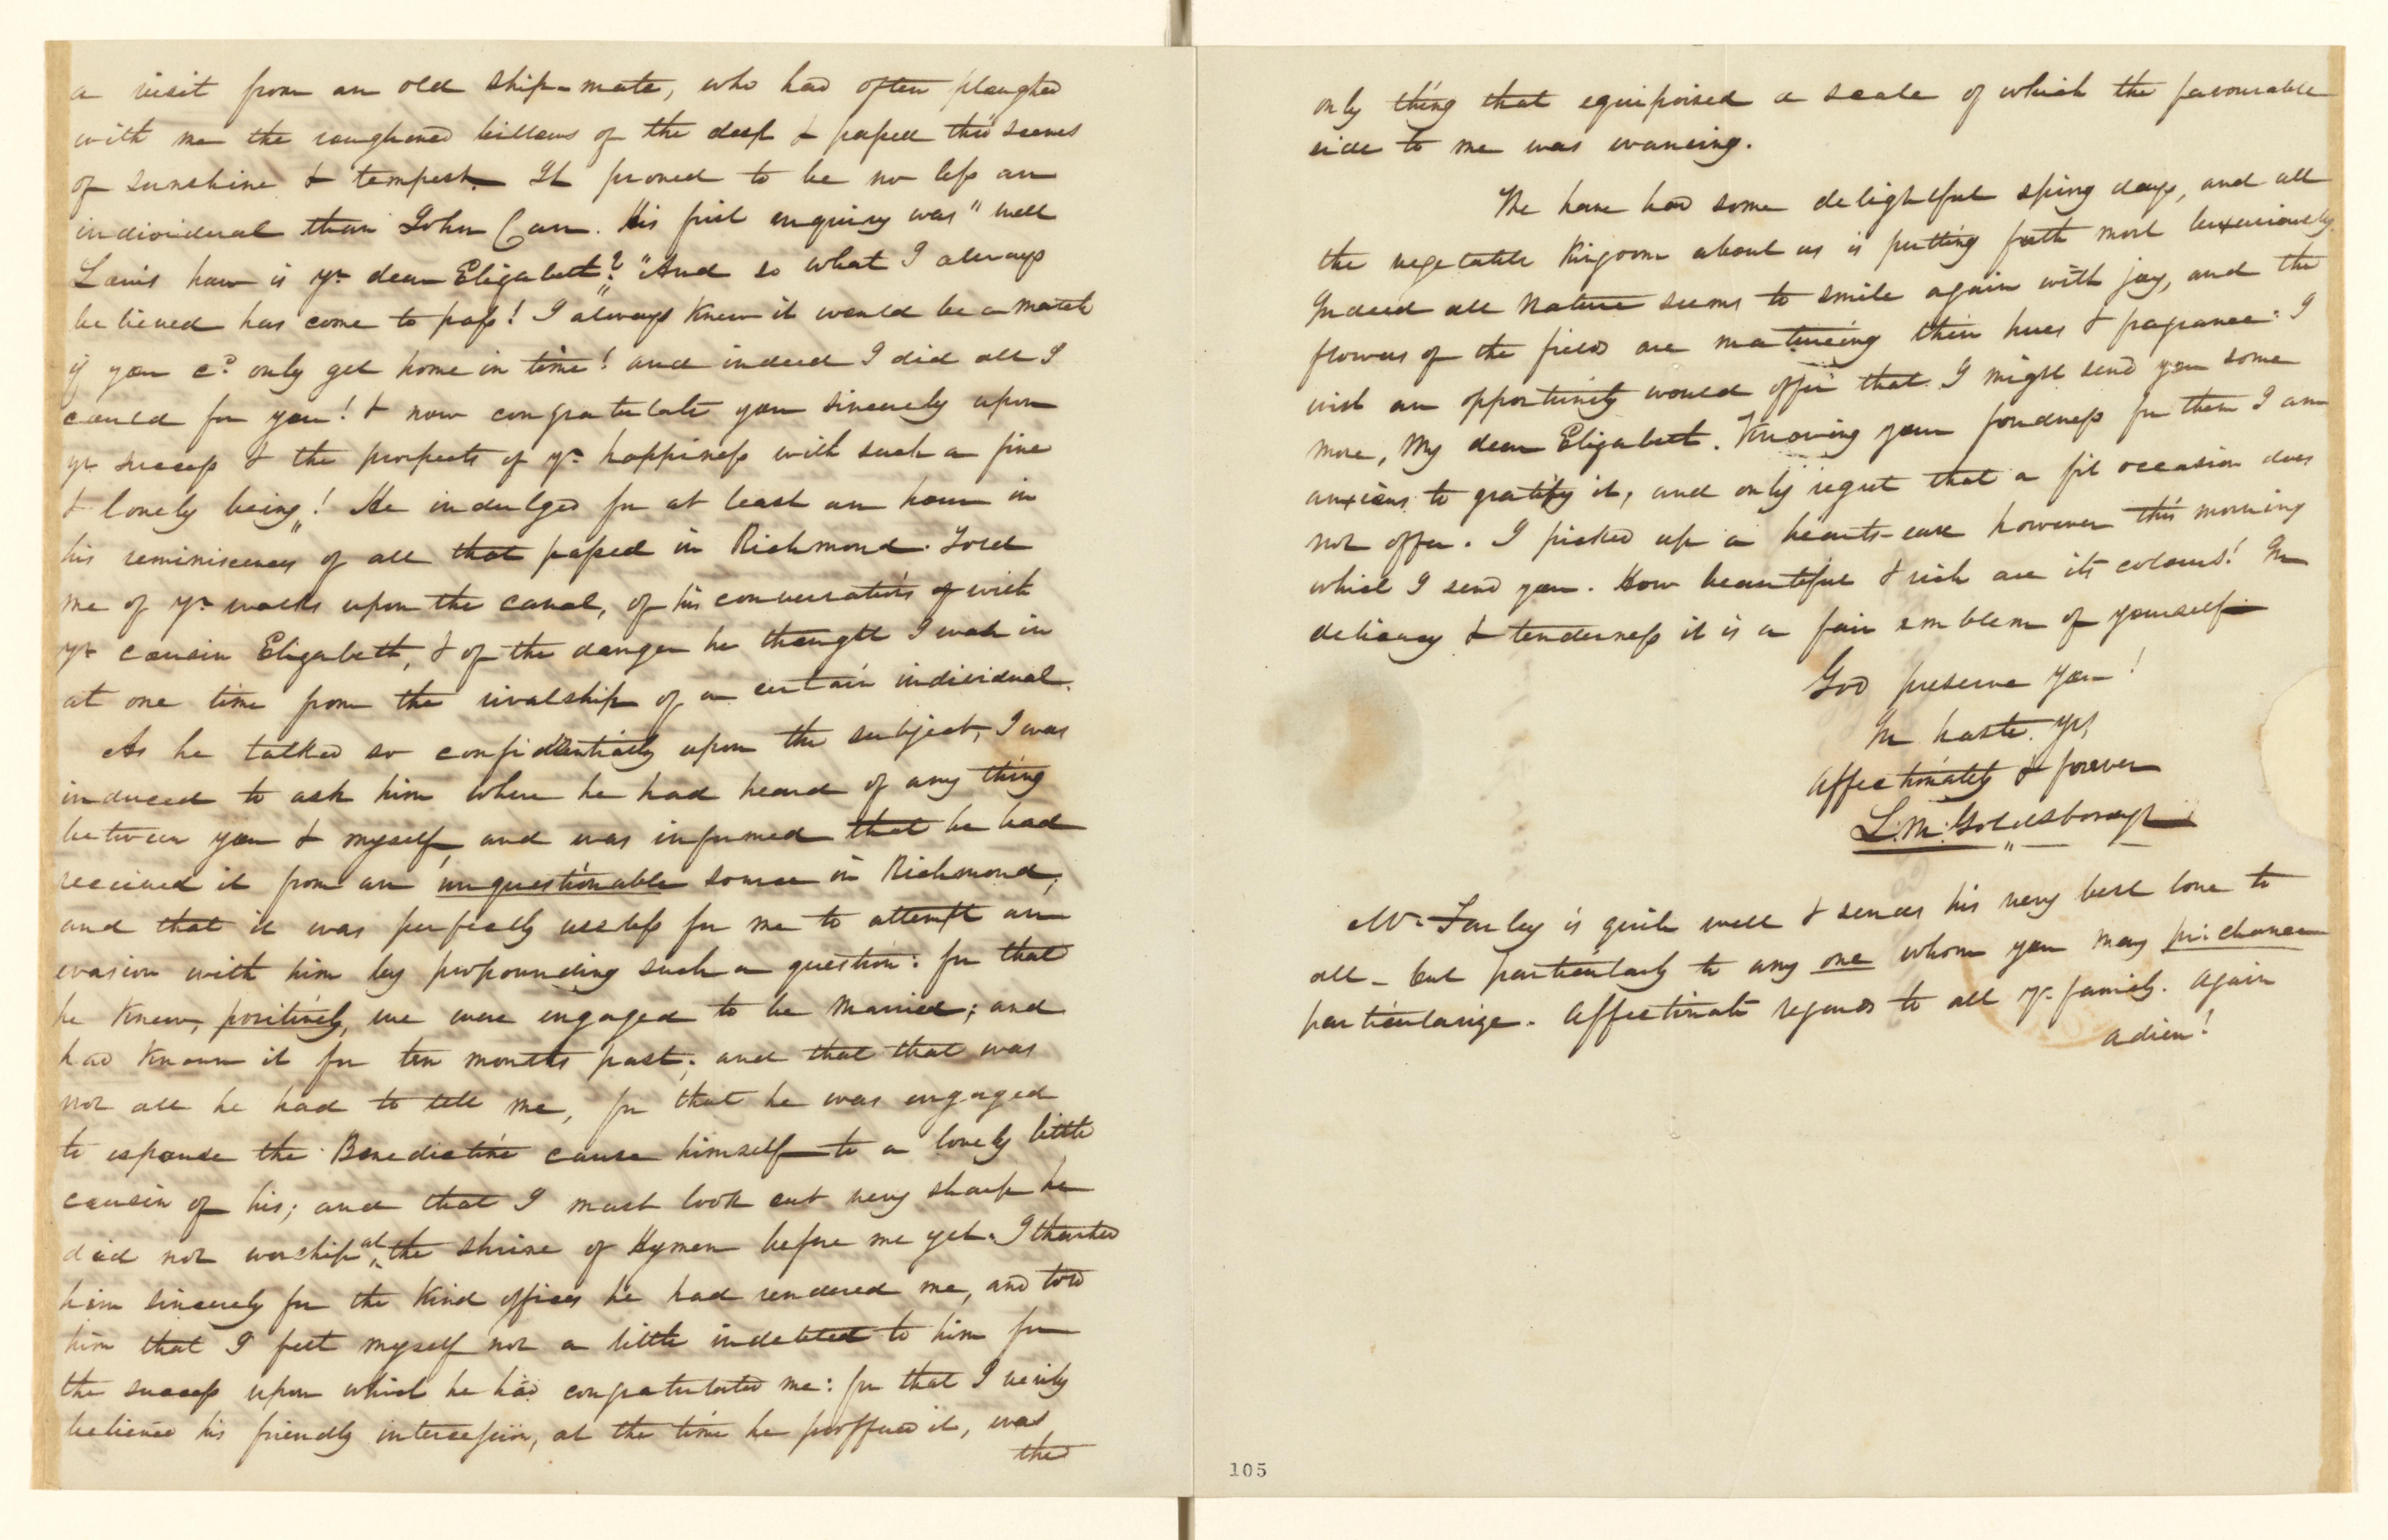 a visit from an old ship-mate, who had often ploughed
with me the roughened billows of the deep & passed thro' scenes
of sunshine & tempest. It proved to be no less an
individual than John Carr. His first enquiry was "well
Louis how is yr. dear Elizabeth"? "And so what I always
believed has come to pass! I always knew it would be a match
if you cd. only get home in time! and indeed I did all I
could for you! & now congratulate you sincerely upon
yr. success & the prospects of yr. happiness with such a fine
& lovely being"! He indulged for at least an hour in
his reminiscences of all that passed in Richmond. Told
me of yr. walks upon the canal, of his conversations of with
yr. cousin Elizabeth, & of the danger he thought I was in
at one time from the rivalship of a certain individual.
As he talked so confidentially upon the subject, I was
induced to ask him where he had heard of any thing
between you & myself, and was informed that he had
received it from an unquestionable source in Richmond,
and that it was perfectly useless for me to attempt an
evasion with him by propounding such a question: for that
he knew, positively, we were engaged to be married; and
had known it for ten months past; and that that was
not all he had to tell me, for that he was engaged
to espouse the Benedictine cause himself to a lovely little
cousin of his; and that I must look out very sharp he
did not worship at the shrine of Hymen before me yet. I thanked
him sincerely for the kind offices he had rendered me, and told
him that I felt myself not a little indebted to him for
the success upon which he had congratulated me: for that I verily
believed his friendly intercession, at the time he proffered it, was
the
only thing that equipoised a scale of which the favourable
side to me was wavering.
We have had some delightful spring days, and all
the vegetable kingdom about us is putting forth most luxuriously.
Indeed all nature seems to smile again with joy, and the
flowers of the field are maturing their hues & fragrance: I
wish an opportunity would offer that I might send you some
more, my dear Elizabeth. Knowing your fondness for them I am
anxious to gratify it, and only regret that a fit occasion does
not offer. I picked up a hearts-ease however this morning
which I send you. How beautiful & rich are its colours! In
delicacy & tenderness it is a fair emblem of yourself.
God preserve you!
In haste. Yrs.
affectionately & forever
L. M. Goldsborough
Mr. Farley is quite well & sends his very best love to
all - but particularly to any one whom you may per.chance
particularize. Affectionate regards to all yr. family. Again
adieu!
105